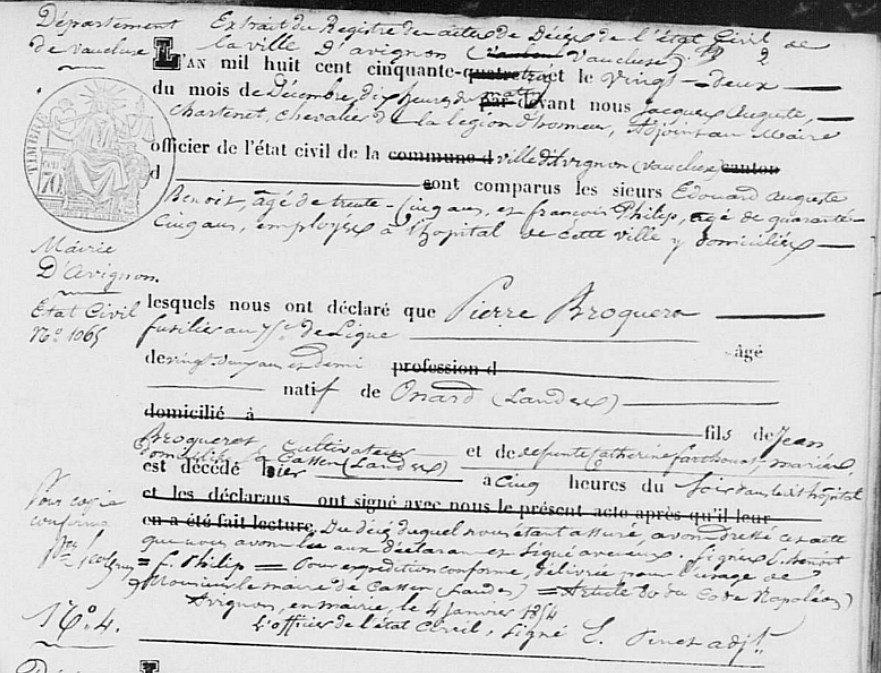 Département Extrait du Registre des actes de Décès de l'état Civil de
de vaucluse la ville D'avignon (Vaucluse). 2
L'AN mil huit cent cinquante-quatre trois et le vingt-deux
du mois de Décembre dix heures du matin par devant nous Jacques Auguste
Chartenet, chevalier de la légion d'honneur, Adjoint au Maire
officier de l'état civil de la commune d ville d'Avignon (vaucluse) canton
d sont comparus les sieurs Edouard Auguste
Benoit, âgé de trente-Cinq ans, et françois Philip, âgé de quarante-
Cinq ans, employés à l'hopital de cette ville y domiciliés
TIMBRE
70
Mairie
D'Avignon.
Etat Civil
N.° 1065
lesquels nous ont déclaré que Pierre Broqueres
fusilier au de Ligne âgé
de vingt-deux ans et demi profession d
natif de Onard (Landes)
domicilié à fils de Jean
Broqueres cultivateur et de defunte Catherine farthouat, mariés,
domiciliés à Cassen (Landes)
est décédé hier à cinq heures du soir dans le dit hôpital
et les déclarans ont signé avec nous le présent acte après qu'il leur
en a été fait lecture. Du décès duquel nous étant assuré, avons dressé cet acte
que nous avons lu aux déclarans et signé avec eux. Signés E. Benoit
= f. Philip = Pour expédition conforme, délivrée pour l'usage de
Monsieur le maire de Cassen (Landes) = Article 80 du Code Napoléon)
Avignon, en mairie, le 4 Janvier 1854
L'officier de l'état Civil, Signé E. Pinet adj.t
Pour copie
conforme
N.° 4.